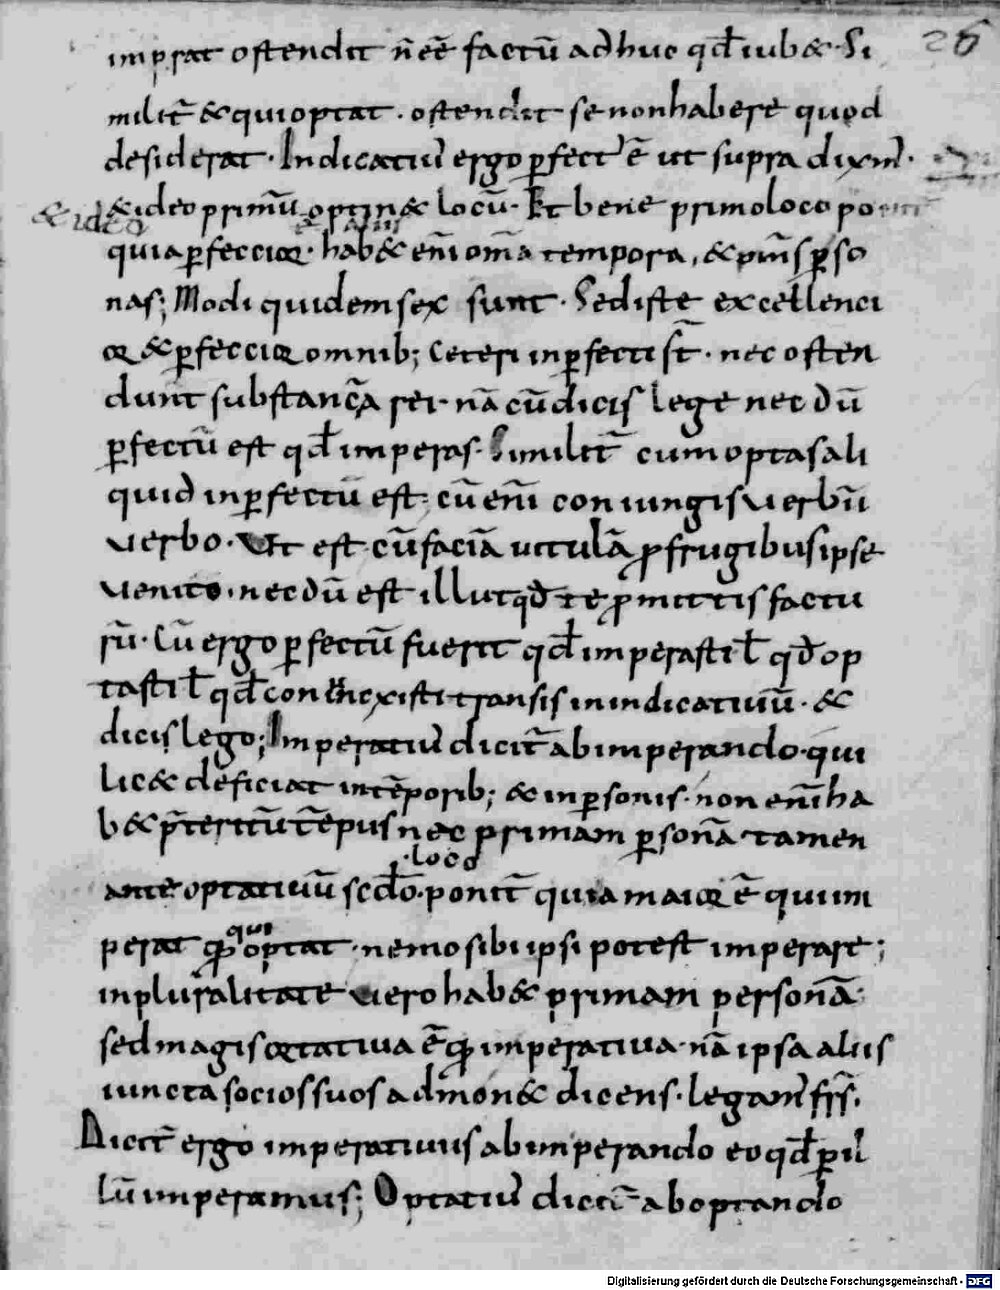 26
imperat ostendit nēeē factū adhuc qđ iub&· Si
milit̄ & qui optat· ostendit se non habere quod
desiderat· Indicatiu' ergo ꝑfect' ē ut supra dixim'·
& ideo
& ideo primū optin& locū· Et bene primo loco
quia ꝑfeccior· hab& eni omia tempora, & oms ꝑso
nas; Modi quidem sex sunt· Sed iste excellenci
or & ꝑfeccior omnib; Ceteri inꝑfecti st̄· nec osten
dunt substancā rei· nā cū dicis lege nec dū
ꝑfectū est qđ imperas· Similit̄ cum optas ali
quid inꝑfectū est· cū eni coniungis verbū
verbo· Ut est cū faciā uitulā ꝓ frugibus ipse
venito· nec dū est illut qđ te ꝓmittis factu
rū· Cū ergo ꝑfectū fuerit qđ imperasti ł qđ op
tasti ł qđ coniunxisti transis in indicatiuū· &
dicis lego; Imperatiu' dicit̄ ab imperando· qui
lic& deficiat in tēporib; & in ꝑsonis· non eni ha
b& p̄teritū tēpus nec primam ꝑsonā· tamen
· loco
ante optatiuū sc̄do· ponit̄ quia maior ē qui im
qui
perat quā optat· nemo sibi ipsi potest imperare;
in pluralitate uero hab& primam personā·
sed magis ortatiua ē quā imperatiua· nā ipsa aliis
iuncta socios suos admon& dicens· legam' frs̄·
Dicit̄ ergo imperatiuus ab imperando eo qđ ꝑ il
lū imperamus; Optatiu' dicit̄ ab optando
Digitalisierung gefördert durch die Deutsche Forschungsgemeinschaft - DFG